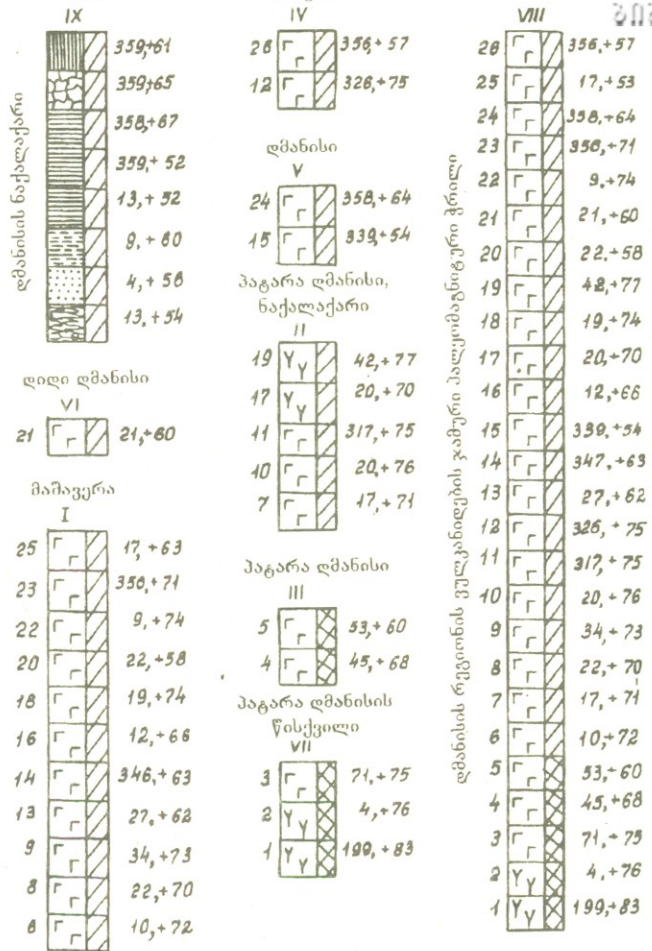 IX
დმანისის ნაქალაქარი
359,+61
359,+65
358,+67
359,+52
13,+52
9,+60
4,+56
13,+54
დიდი დმანისი
VI
21 21,+60
მაშავერა
I
25 17,+63
23 356,+71
22 9,+74
20 22,+58
18 19,+74
16 12,+66
14 346,+63
13 27,+62
9 34,+73
8 22,+70
6 10,+72
IV
26 356,+57
12 326,+75
დმანისი
V
24 358,+64
15 339,+54
პატარა დმანისი,
ნაქალაქარი
II
19 42,+77
17 20,+70
11 317,+75
10 20,+76
7 17,+71
პატარა დმანისი
III
5 53,+60
4 45,+68
პატარა დმანისის
წისქვილი
VII
3 71,+75
2 4,+76
1 199,+83
VIII
დმანისის რეგიონის ვულკანიდების ჯამური პალეომაგნიტური ჭრილი
26 356,+57
25 17,+53
24 358,+64
23 356,+71
22 9,+74
21 21,+60
20 22,+58
19 42,+77
18 19,+74
17 20,+70
16 12,+66
15 339,+54
14 347,+63
13 27,+62
12 326,+75
11 317,+75
10 20,+76
9 34,+73
8 22,+70
7 17,+71
6 10,+72
5 53,+60
4 45,+68
3 71,+75
2 4,+76
1 199,+83